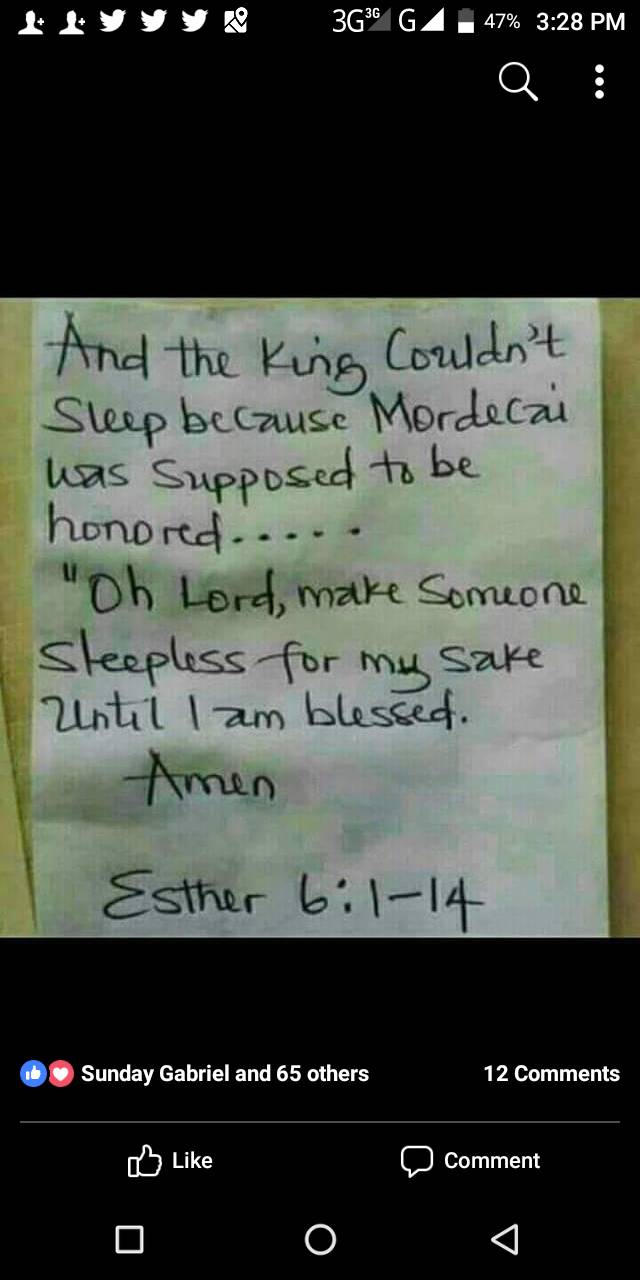 3G 3G G 47% 3:28 PM
And the King Couldn't
Sleep because Mordecai
was Supposed to be
honored.....
"Oh Lord, make Someone
Sleepless for my Sake
Until I am blessed.
Amen
Esther 6:1-14
Sunday Gabriel and 65 others 12 Comments
Like Comment